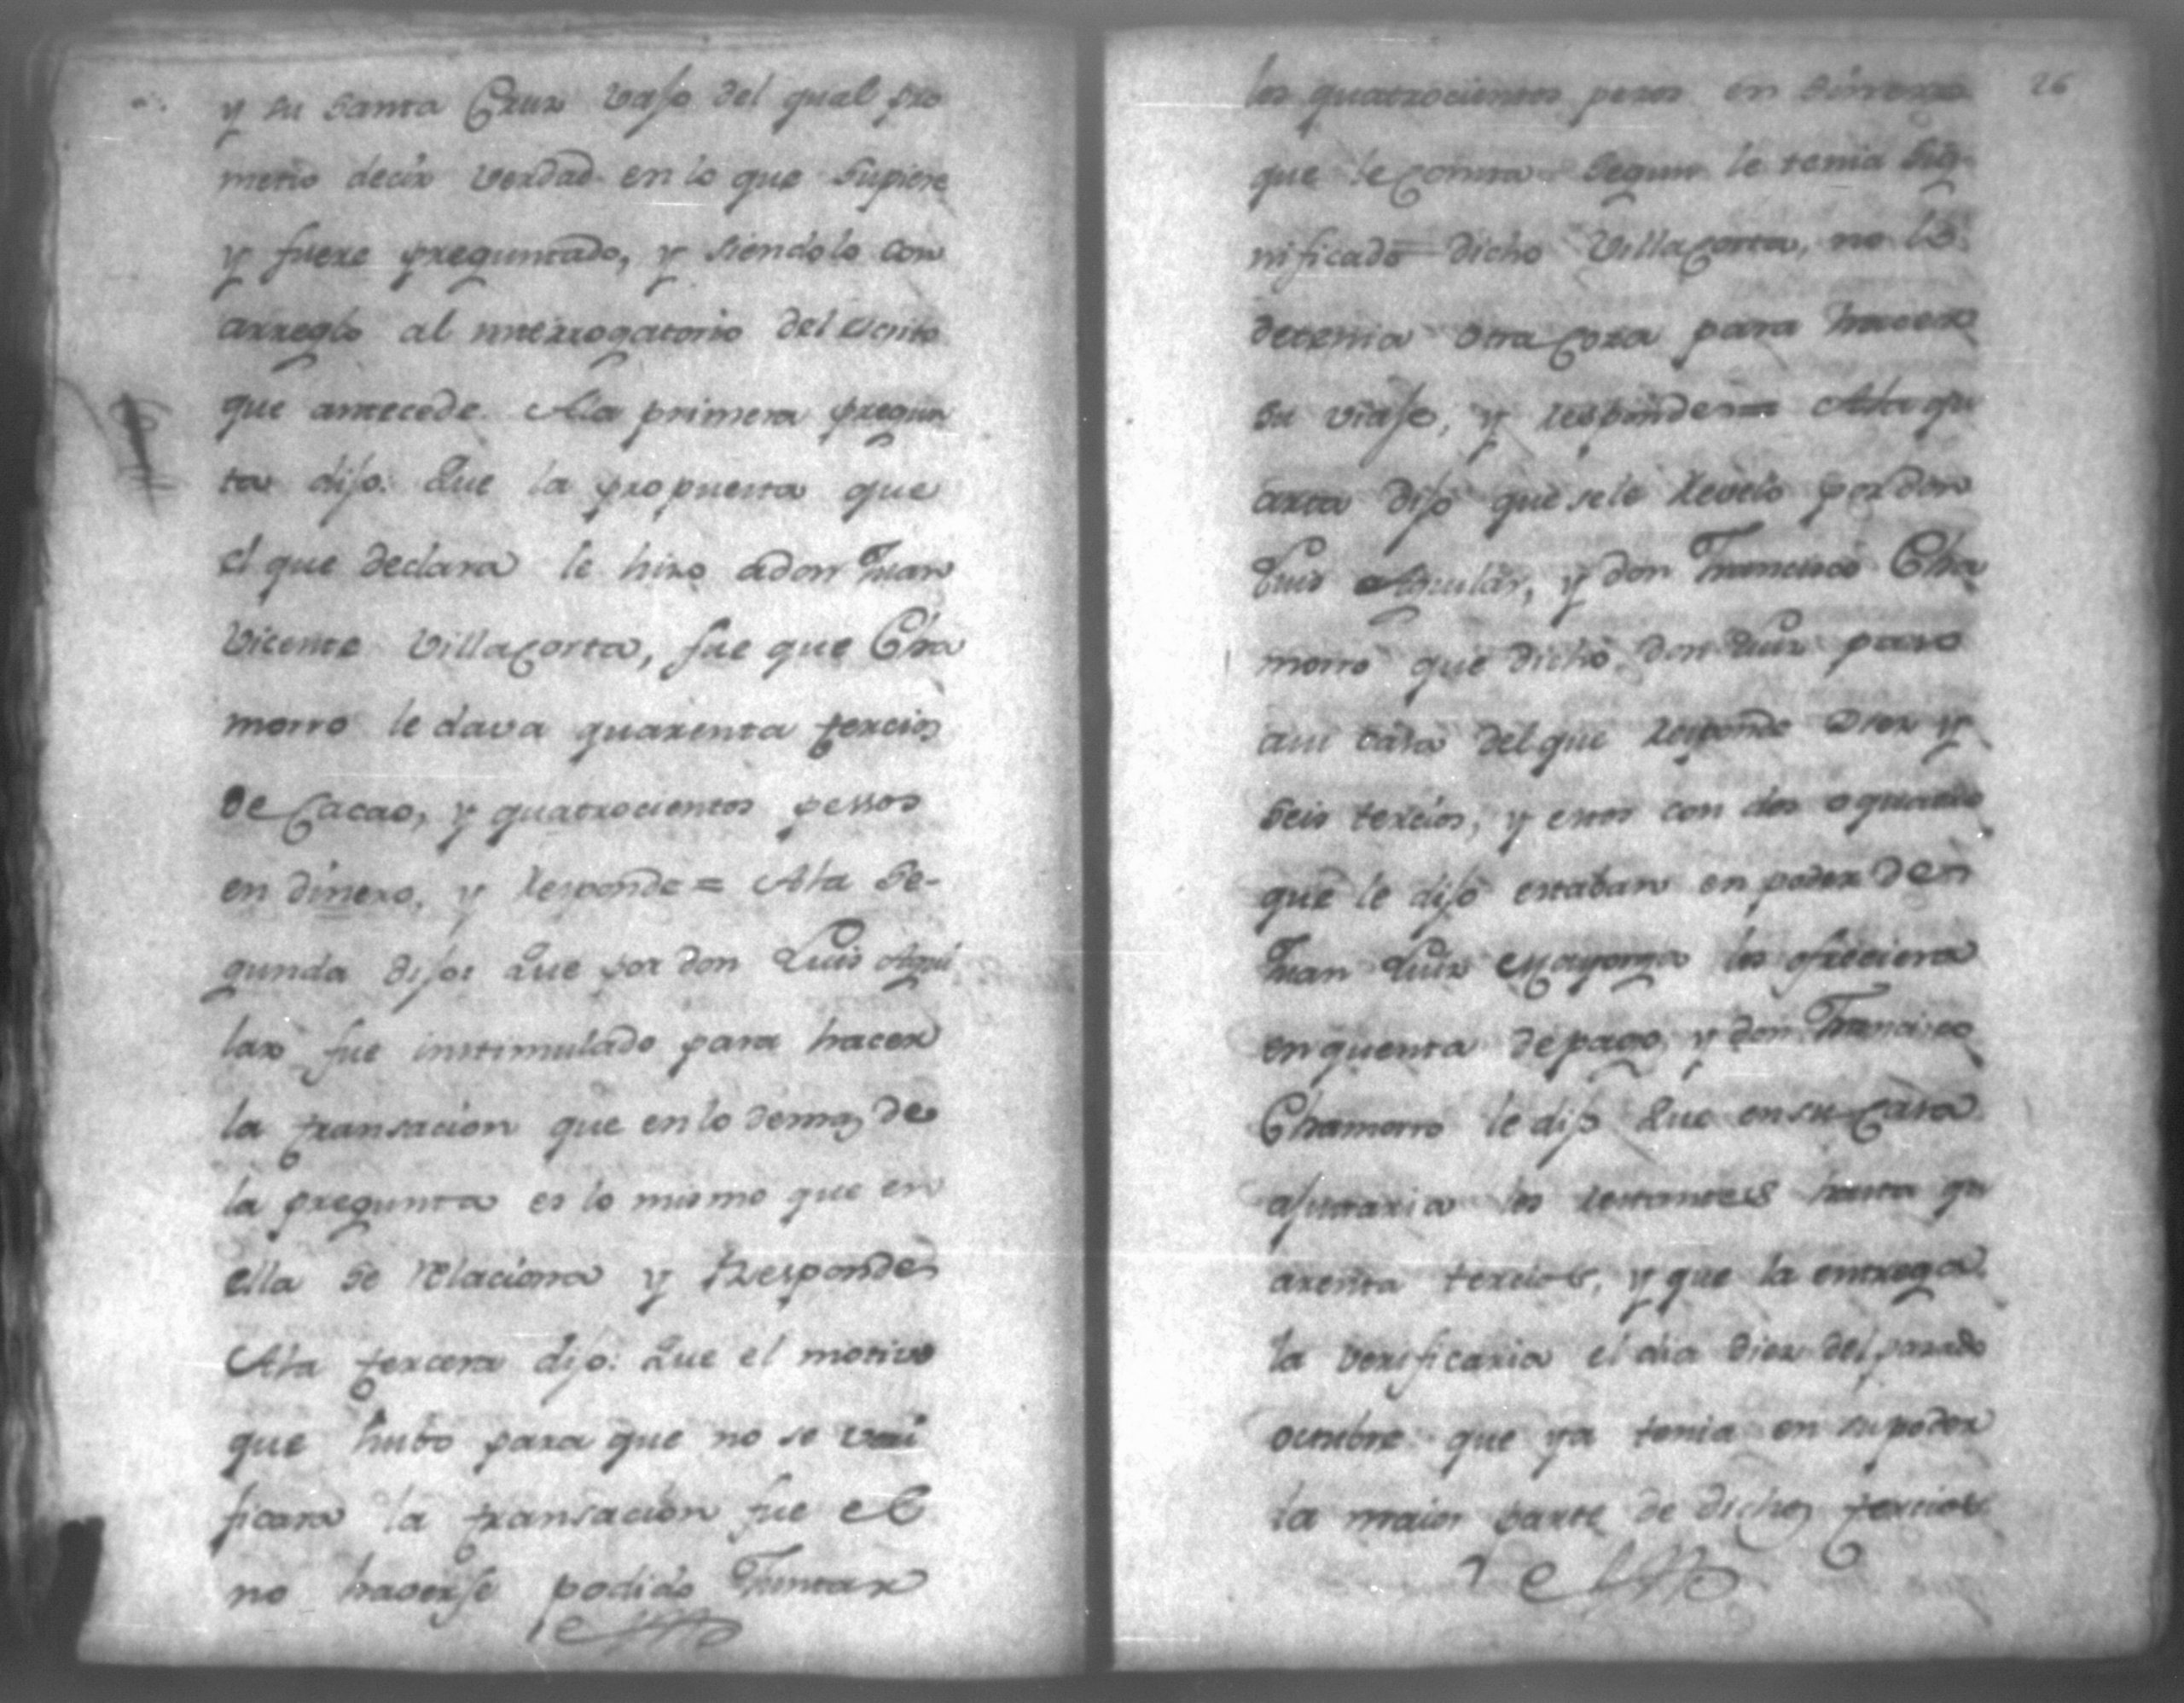 y su Santa Cruz vajo del qual pro
metio decir verdad en lo que supiere
y fuere preguntado, y siendolo con
arreglo al interrogatorio del escrito
que antecede. Ala primera pregun
ta dijo: Que la propuesta que
el que declara le hizo adon Juan
Vicente Villacorta, fue que Cha
morro le dava quarenta tercios
de Cacao, y quatrocientos pessos
en dinero, y responde = Ala Se-
gunda dijo: Que por don Luis Agui
lar fue instimulado para hacer
la transacion que en lo demas de
la pregunta es lo mismo que en
ella se relaciona y Responde
Ala tercera dijo: Que el motivo
que hubo para que no se veri
ficara la transacion fue el
no haverse podido Juntar
26
los quatrocientos pesos en dinero
que le consta segun le tenia sig-
nificado dicho Villacorta, no le
detenia otra coza para hacer
su viaje, y responde = Ala qu
arta dijo que se le revelo por don
Luis Aguilar, y don Francisco Cha
morro que dicho don Luis paso
a casa del que responde Diez y
seis tercios, y esos con dos o quatro
que le dijo estaban en poder de
Juan Luis Mayorga los ofreciera
en quenta de pago, y don Francisco
Chamorro le dijo Que en su casa
ajustaria los restantes hasta qu
arenta tercios, y que la entrega
la verificaria el dia diez del pasado
octubre que ya tenia en su poder
la maior parte de dichos tercios